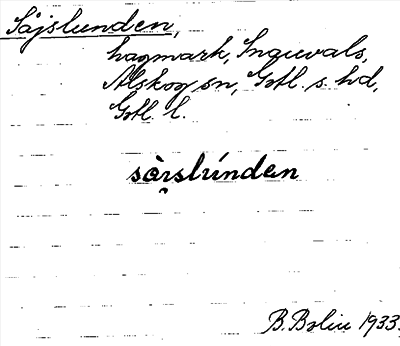 Såjslunden,
hagmark, Inguvals,
Alskog sn, Gotl. s. hd,
Gotl. l.
sàɪ̯slúnden
B. Bolin 1933.